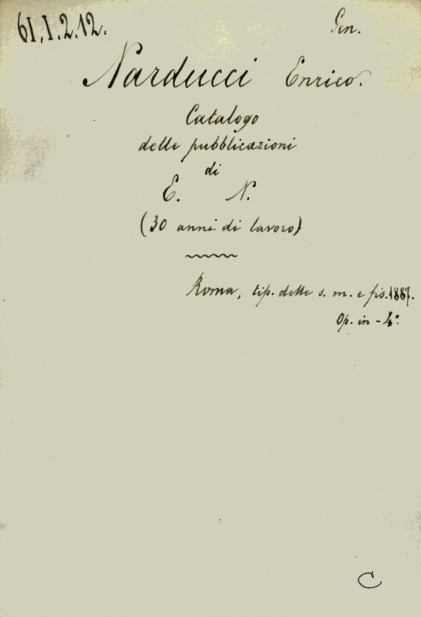 61.I.2.12.
Gen.
Narducci Enrico.
Catalogo
delle pubblicazioni
di
E. N.
(30 anni di lavoro)
Roma, tip. delle s. m. e fis. 1887.
Op. in-4°.
C